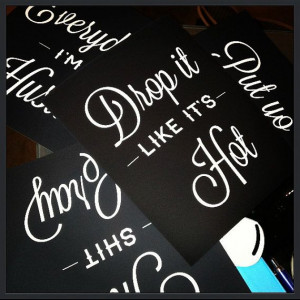 Everyd
I'M
Hus
Drop it
LIKE IT'S
Hot
'Put yo
SHIT